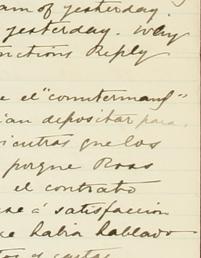 am of yesterday.
yesterday. Why
nctions Reply.
e el "countermand"
ian depositar para
ientras que los
porque Rosas
el contrato
se á satisfaccion
e habia hablado